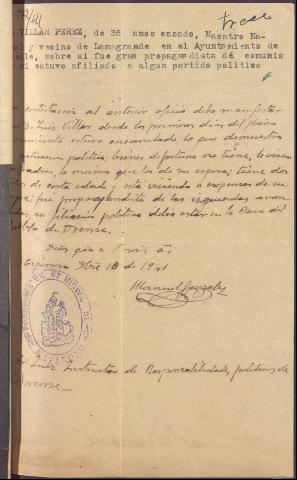 VILLAR PEREZ, de 36 años casado, Maestro Na
y vecino de Lamagrande en el Ayuntamiento de
elle, sobre si fue gran propagandista del comunis
si estuvo afiliado a algun partido politico
contestación al anterior oficio debo manifestar
D. Luis Villar desde los primeros dias del Glorio
vimiento estuvo encarcelado lo que demuestra
actuacion politica; bienes de fortuna no tiene, lo
padres, lo mismo que los de su esposa; tiene dos
de corta edad y esta viviendo a expensas de su
fue propagandista de las izquierdas avan
su filiación politica debe estar en la Casa del
blo de Orense.
Dios guarde
Espinoso 18 de 1941
Manuel Gonzalez
Juez Instructor de Responsabilidades politicas de
Orense